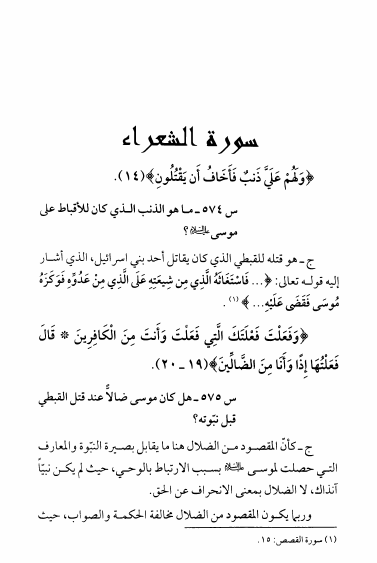 سورة الشعراء
﴿وَلَهُمْ عَلَيَّ ذَنبٌ فَأَخَافُ أَن يَقْتُلُونِ﴾(١٤).
س ٥٧٤ ـ ما هو الذنب الذي كان للأقباط على
موسى ﷺ؟
ج ـ هو قتله للقبطي الذي كان يقاتل أحد بني اسرائيل، الذي أشار
إليه قوله تعالى: ﴿... فَاسْتَغَاثَهُ الَّذِي مِن شِيعَتِهِ عَلَى الَّذِي مِنْ عَدُوِّهِ فَوَكَزَهُ
مُوسَى فَقَضَى عَلَيْهِ... ﴾ (١).
﴿وَفَعَلْتَ فَعْلَتَكَ الَّتِي فَعَلْتَ وَأَنتَ مِنَ الْكَافِرِينَ * قَالَ
فَعَلْتُهَا إِذًا وَأَنَا مِنَ الضَّالِّينَ﴾(١٩ ـ ٢٠).
س ٥٧٥ ـ هل كان موسى ضالاً عند قتل القبطي
قبل نبوّته؟
ج ـ كأنّ المقصود من الضلال هنا ما يقابل بصيرة النبوّة والمعارف
التي حصلت لموسى بسبب الارتباط بالوحي، حيث لم يكن نبيّاً
آنذاك، لا الضلال بمعنى الانحراف عن الحق.
وربما يكون المقصود من الضلال مخالفة الحكمة والصواب، حيث
(١) سورة القصص: ١٥.